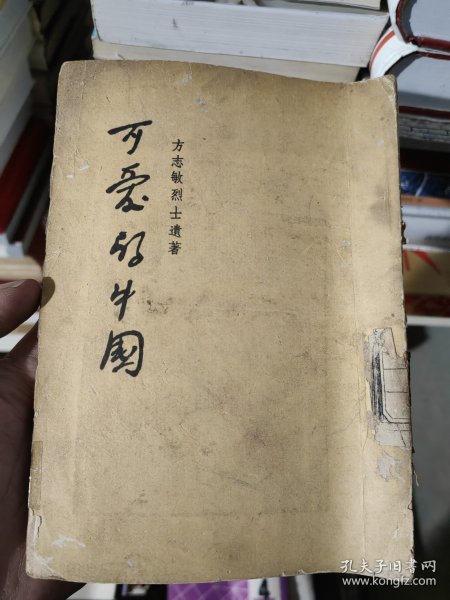 方志敏烈士遺著
可愛的中國
孔夫子旧书网
www.kongfz.com